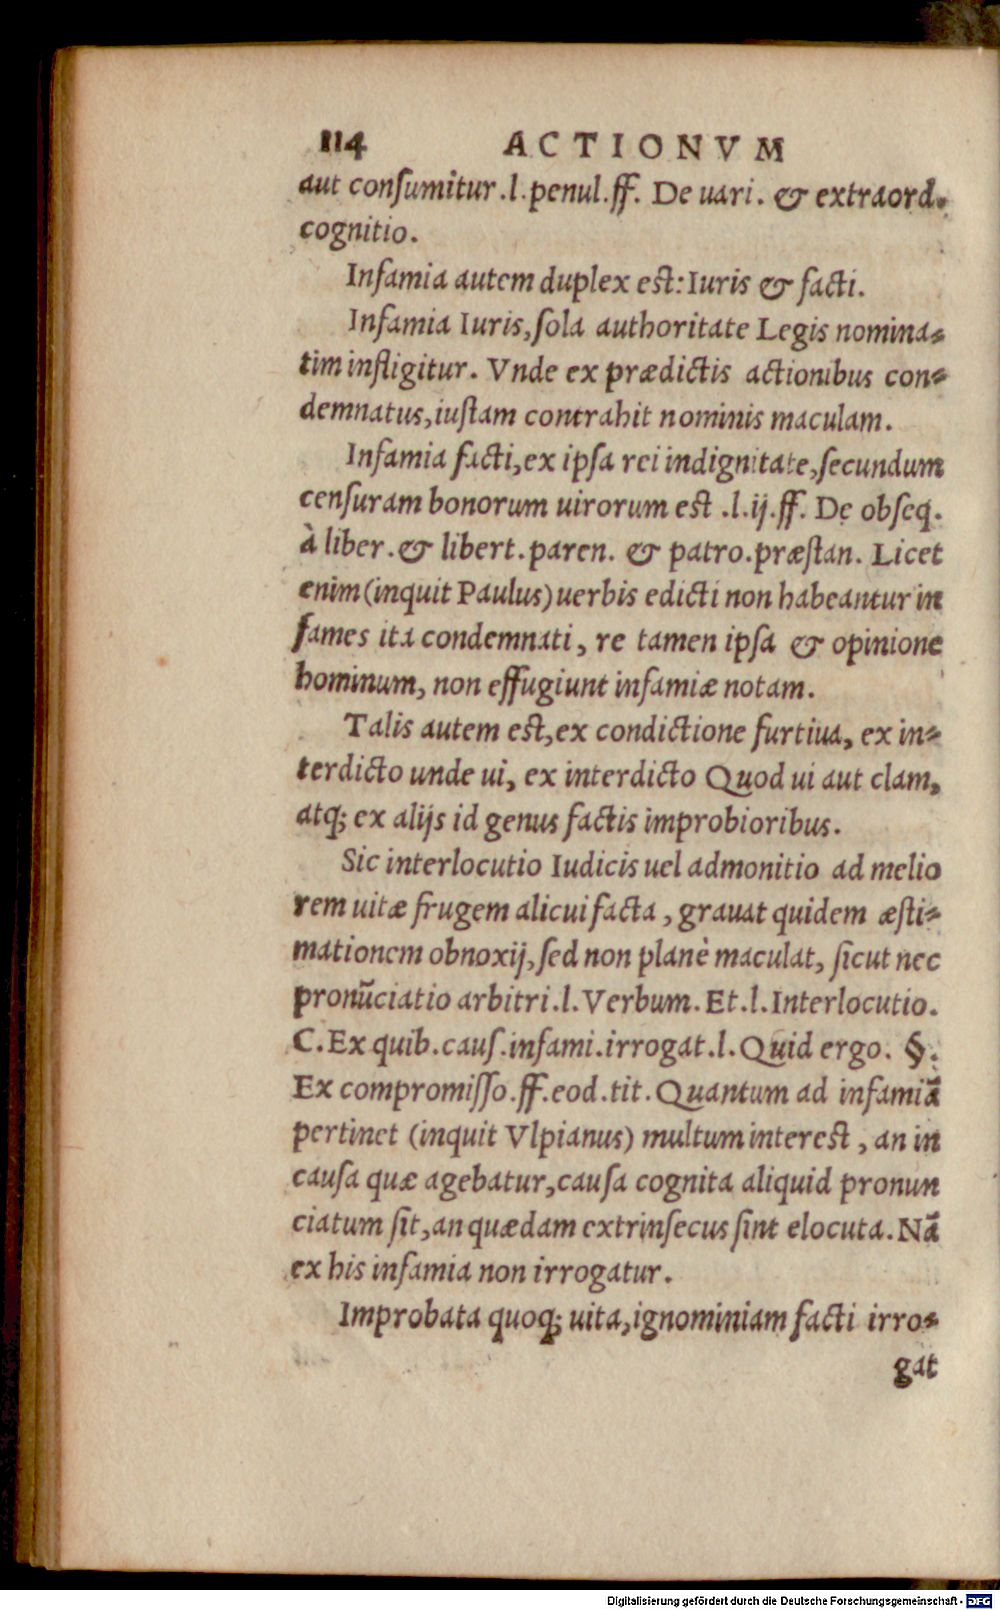 114 ACTIONVM
aut conſumitur .l. penul. ff. De uari. & extraord.
cognitio.
Infamia autem duplex eſt: Iuris & facti.
Infamia Iuris, ſola authoritate Legis nomina-
tim infligitur. Vnde ex prædictis actionibus con-
demnatus, iuſtam contrahit nominis maculam.
Infamia facti, ex ipſa rei indignitate, ſecundum
cenſuram bonorum uirorum eſt .l. ij. ff. De obſeq.
à liber. & libert. paren. & patro. præſtan. Licet
enim (inquit Paulus) uerbis edicti non habeantur in
fames ita condemnati, re tamen ipſa & opinione
hominum, non effugiunt infamiæ notam.
Talis autem eſt, ex condictione furtiua, ex in-
terdicto unde ui, ex interdicto Quod ui aut clam,
atq; ex alijs id genus factis improbioribus.
Sic interlocutio Iudicis uel admonitio ad melio
rem uitæ frugem alicui facta, grauat quidem æſti-
mationem obnoxij, ſed non planè maculat, ſicut nec
pronūciatio arbitri .l. Verbum. Et .l. Interlocutio.
C. Ex quib. cauſ. infami. irrogat .l. Quid ergo. §.
Ex compromiſſo. ff. eod. tit. Quantum ad infamiā
pertinet (inquit Vlpianus) multum intereſt, an in
cauſa quæ agebatur, cauſa cognita aliquid pronun
ciatum ſit, an quædam extrinſecus ſint elocuta. Nā
ex his infamia non irrogatur.
Improbata quoq; uita, ignominiam facti irro-
gat
Digitalisierung gefördert durch die Deutsche Forschungsgemeinschaft - DFG